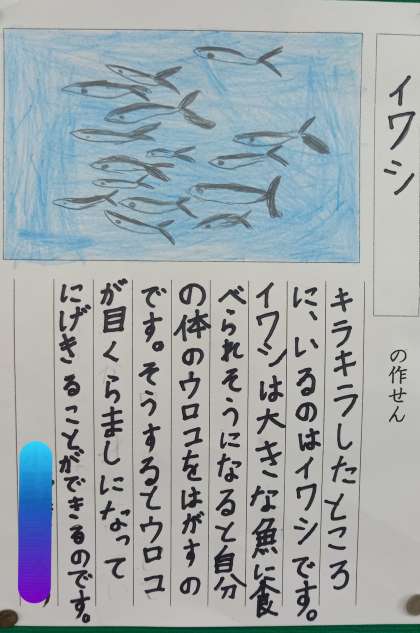 イワシ
の作せん
キラキラしたところ
に、いるのはイワシです。
イワシは大きな魚に食
べられそうになると自分
の体のウロコをはがすの
です。そうするとウロコ
が目くらましになって
にげきることができるのです。